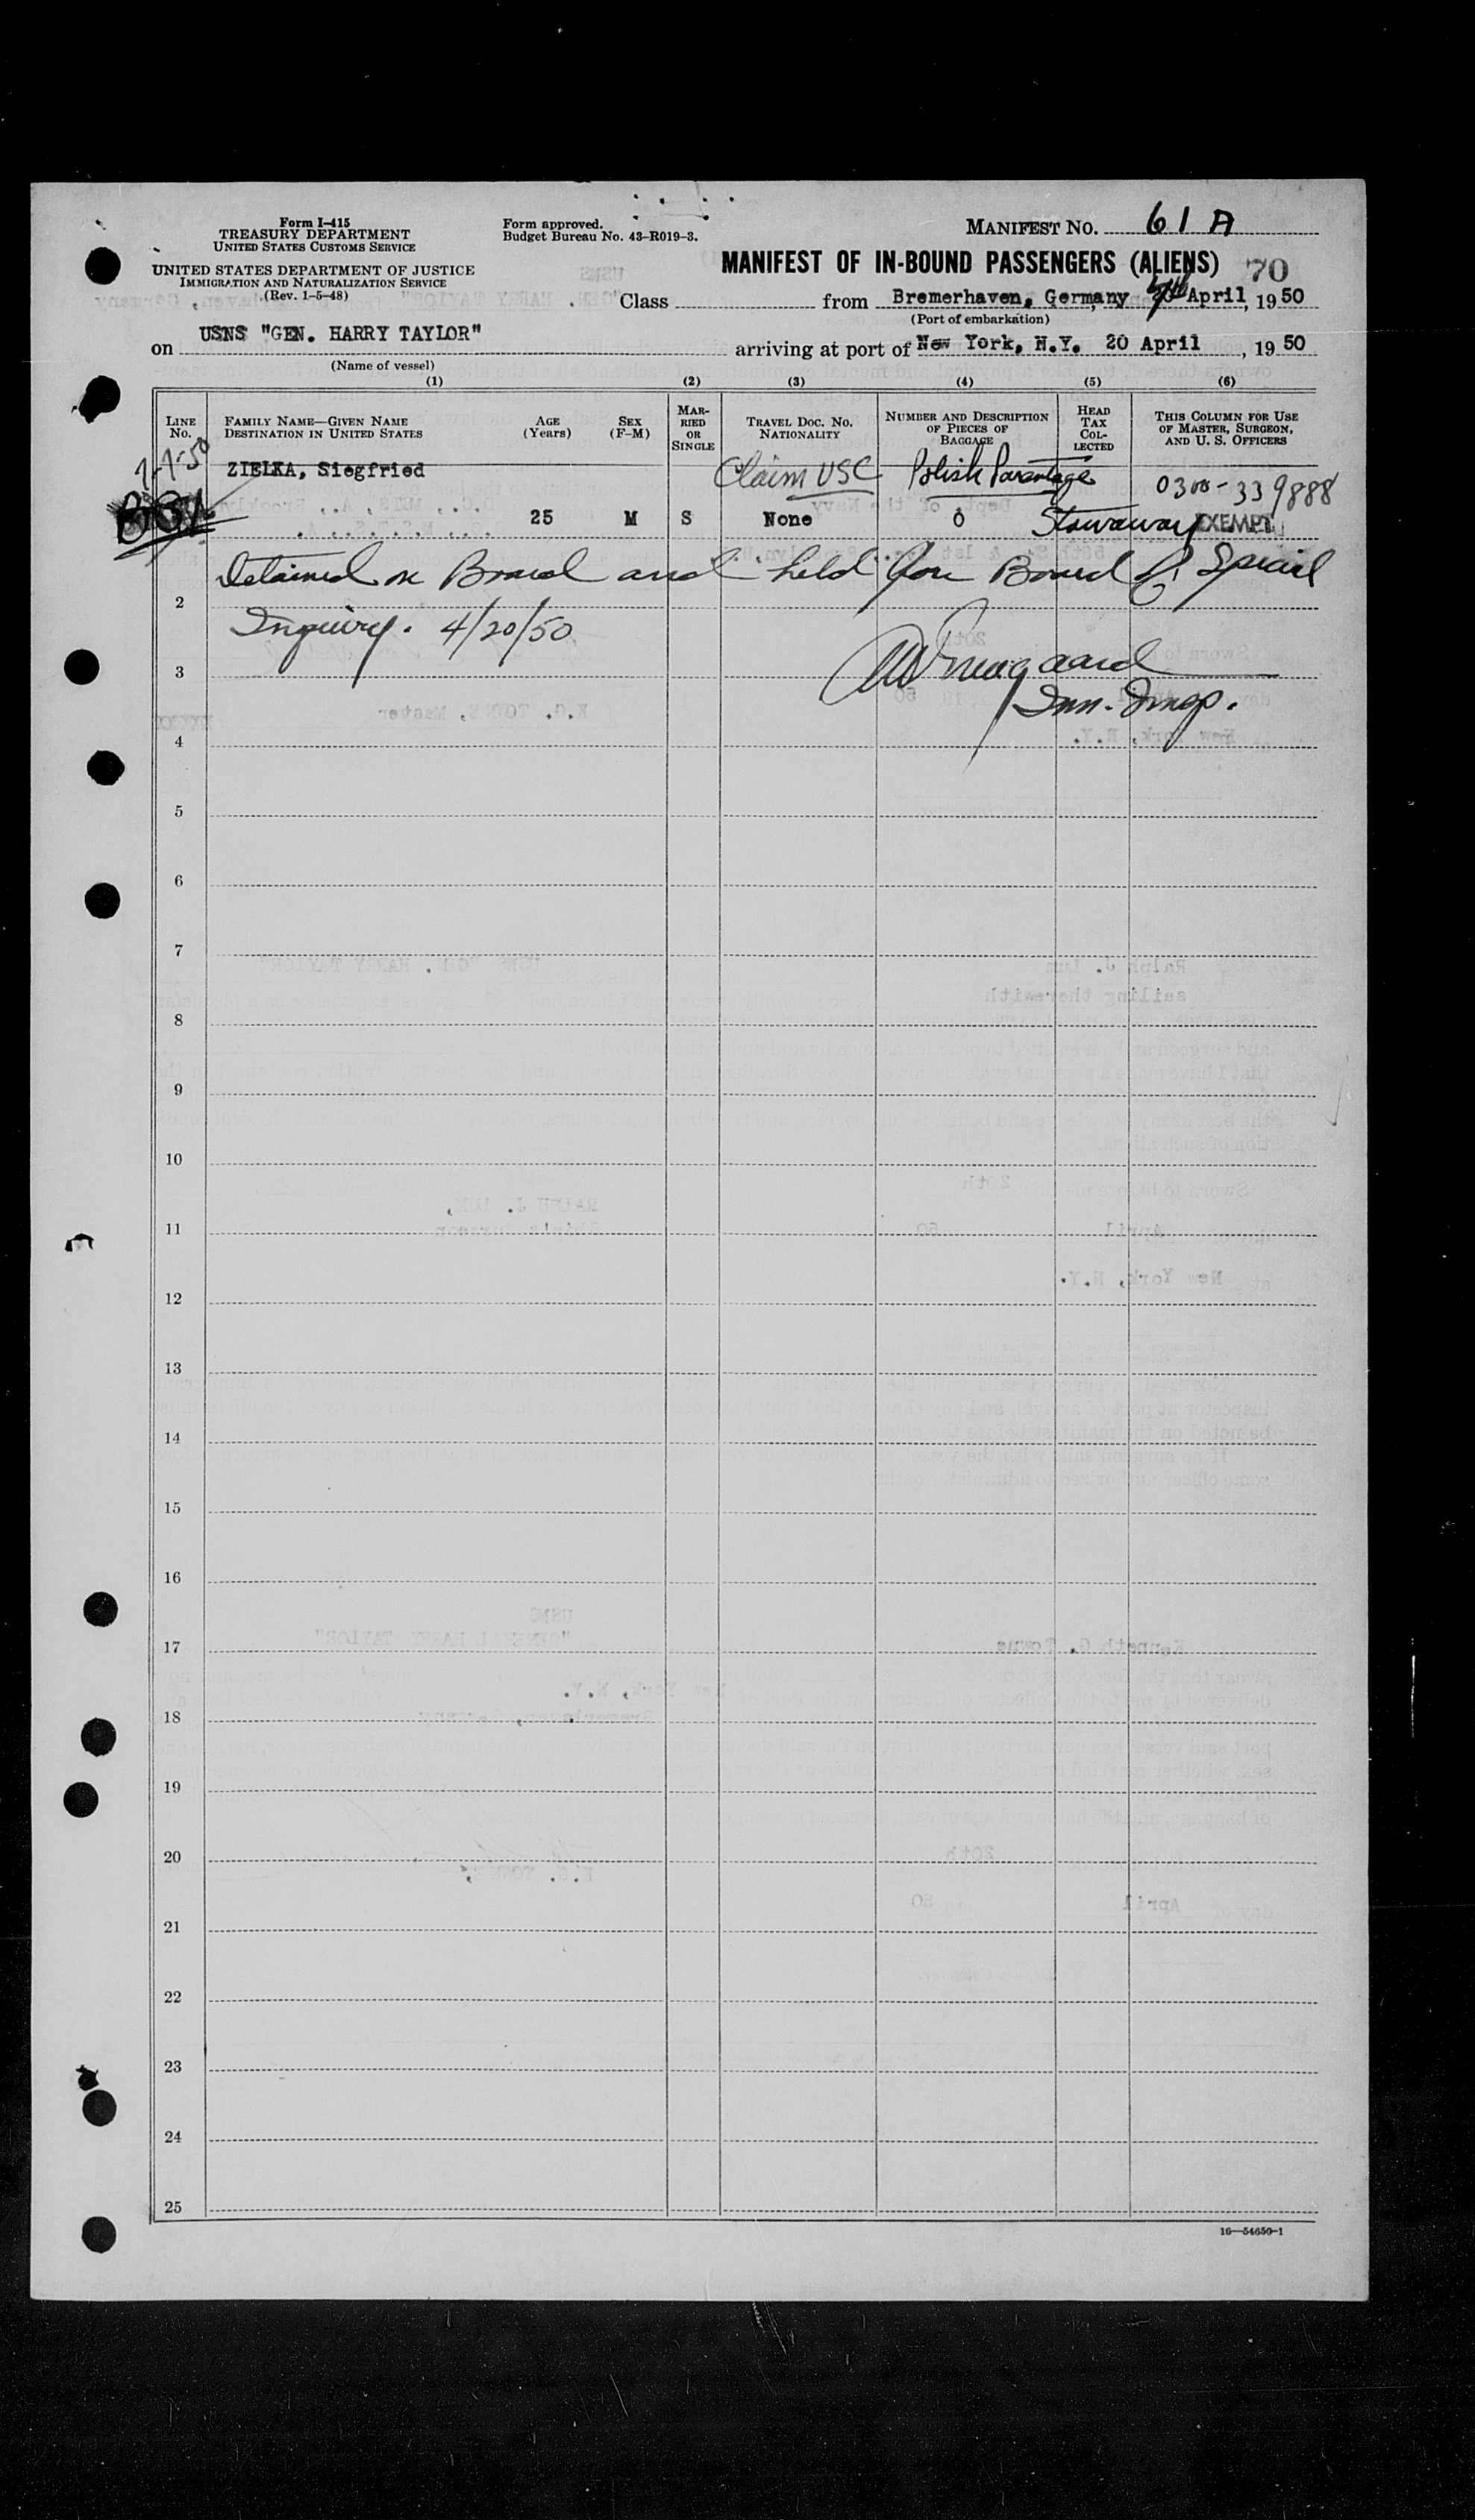 Form I-415
TREASURY DEPARTMENT
UNITED STATES CUSTOMS SERVICE
UNITED STATES DEPARTMENT OF JUSTICE
IMMIGRATION AND NATURALIZATION SERVICE
(Rev. 1-5-48)
Form approved.
Budget Bureau No. 43-R019-3.
MANIFEST NO. 61 A
MANIFEST OF IN-BOUND PASSENGERS (ALIENS) 70
Class from Bremerhaven, Germany April, 1950
(Port of embarkation)
on USNS "GEN. HARRY TAYLOR" arriving at port of New York, N.Y. 20 April, 1950
(Name of vessel)
(1) (2) (3) (4) (5) (6)
LINE No.
FAMILY NAME—GIVEN NAME
DESTINATION IN UNITED STATES
AGE
(Years)
SEX
(F-M)
MAR-
RIED
OR
SINGLE
TRAVEL DOC. NO.
NATIONALITY
NUMBER AND DESCRIPTION
OF PIECES OF
BAGGAGE
HEAD
TAX
COL-
LECTED
THIS COLUMN FOR USE
OF MASTER, SURGEON,
AND U. S. OFFICERS
ZIELKA, Siegfried Claim USC Polish Parentage 0300-339888
25 M S None 0 Stowaway EXEMPT
Detained on Board and held for Board of Special
2
Inquiry. 4/20/50
3
Imm. Insp.
4
5
6
7
8
9
10
11
12
13
14
15
16
17
18
19
20
21
22
23
24
25
16—54650-1